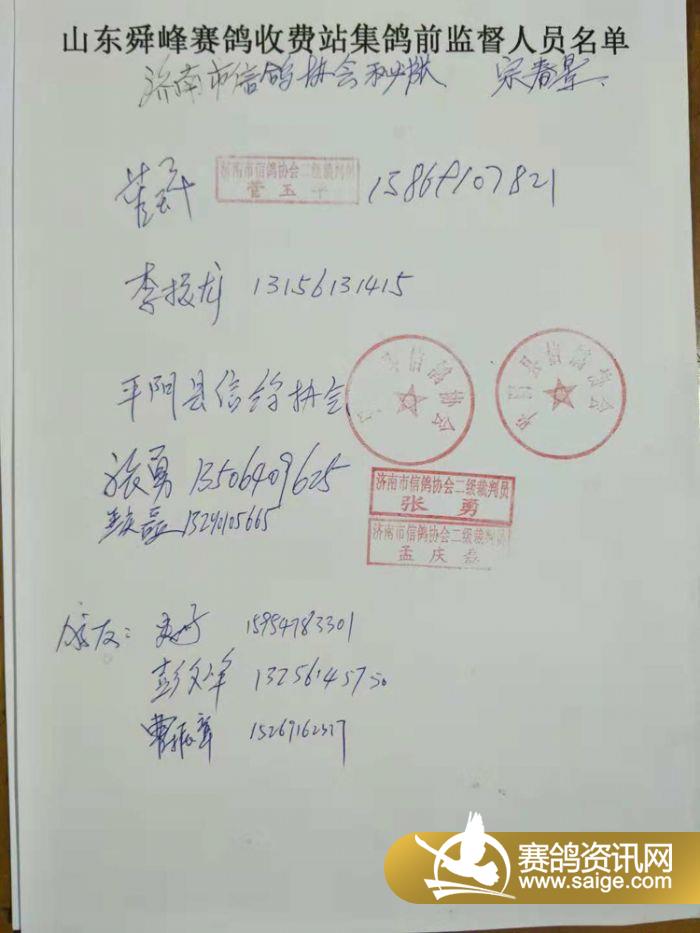 山东舜峰赛鸽收费站集鸽前监督人员名单
济南市信鸽协会秘书长 宗春景
济南市信鸽协会二级裁判员
管玉平
15869107821
李振龙 13156131415
平阴县信鸽协会
信鸽协会
张勇 13506409625
济南市信鸽协会二级裁判员
张勇
孟庆磊 13240105665
济南市信鸽协会二级裁判员
孟庆磊
鸽友: 15954783301
彭文峰 13256145750
曹振 15269162327
赛鸽资讯网
www.saige.com